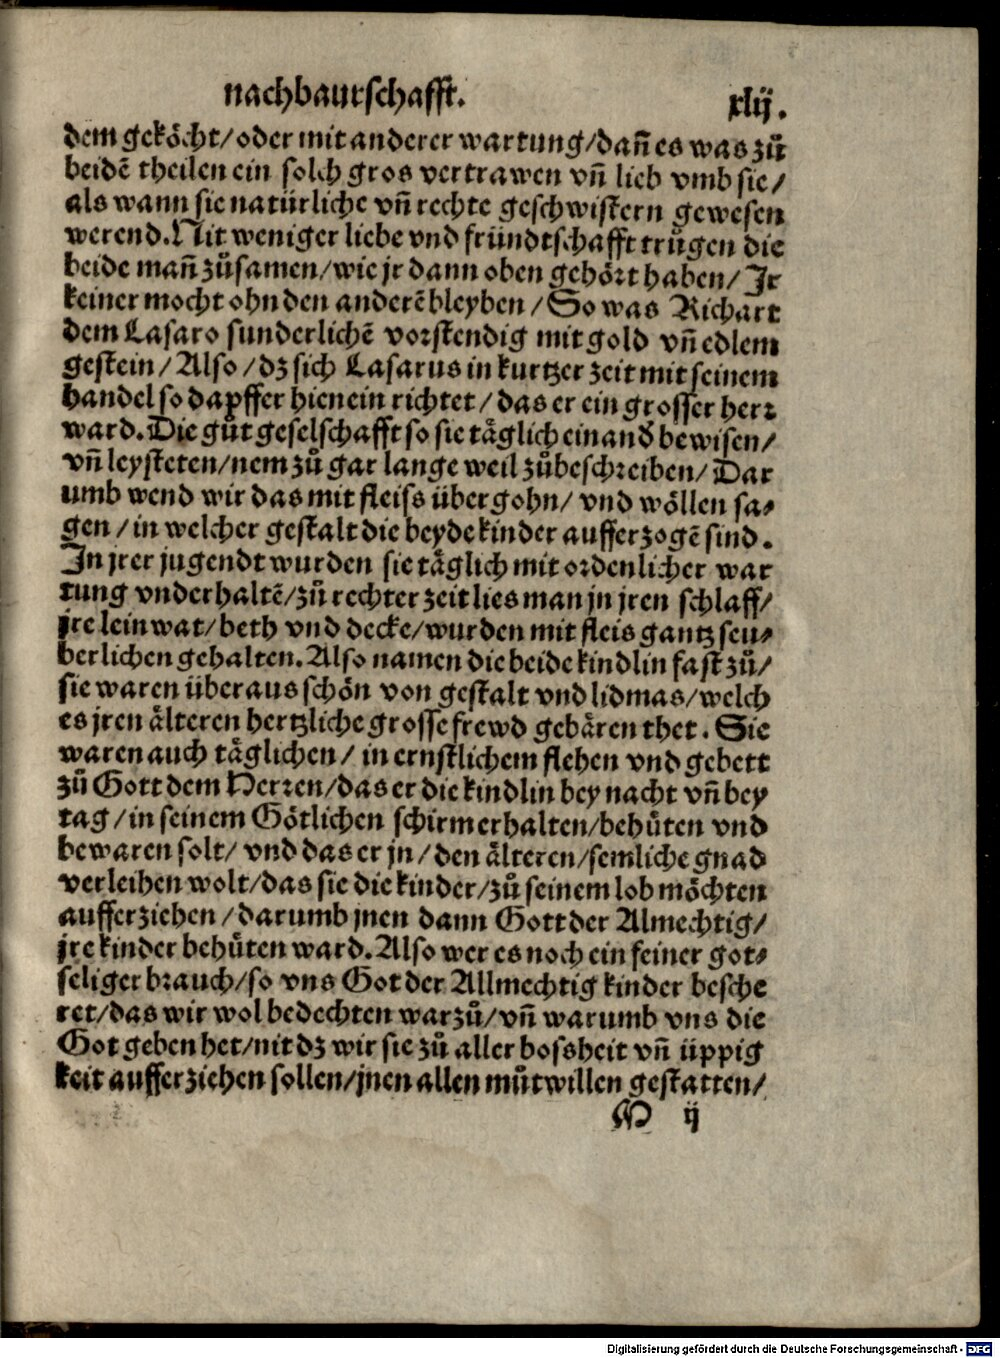 nachbaurschafft.
xlij.
dem gekoͤcht/oder mit anderer wartung/dañ es was zuͦ
beidē theilen ein solch gros vertrawen vñ lieb vmb sie/
als wann sie natürliche vñ rechte geschwistern gewesen
werend. Nit weniger liebe vnd fründtschafft truͦgen die
beide mañ zuͦsamen/wie jr dann oben gehoͤrt haben/Jr
keiner mocht ohn den anderē bleyben/So was Richart
dem Lasaro sunderlichē vorstendig mit gold vñ edlem
gestein/Also/dz sich Lasarus in kurtzer zeit mit seinem
handel so dapffer hienein richtet/das er ein grosser herr
ward. Die guͦt geselschafft so sie taͤglich einand̕ bewisen/
vñ leysteten/nem zuͦ gar lange weil zuͦbeschreiben/Dar
umb wend wir das mit fleiss übergohn/vnd woͤllen sa⸗
gen/in welcher gestalt die beyde kinder aufferzogē sind.
In jrer jugendt wurden sie taͤglich mit ordenlicher war
tung vnderhaltē/zuͦ rechter zeit lies man jn jren schlaff/
jre leinwat/beth vnd decke/wurden mit fleis gantz seu⸗
berlichen gehalten. Also namen die beide kindlin fast zuͦ/
sie waren überaus schoͤn von gestalt vnd lidmas/welch
es jren aͤlteren hertzliche grosse frewd gebaͤren thet. Sie
waren auch taͤglichen/in ernstlichem flehen vnd gebett
zuͦ Gott dem Herren/das er die kindlin bey nacht vñ bey
tag/in seinem Goͤtlichen schirm erhalten/behuͤten vnd
bewaren solt/vnd das er jn/den aͤlteren/semliche gnad
verleihen wolt/das sie die kinder/zuͦ seinem lob moͤchten
aufferziehen/darumb jnen dann Gott der Almechtig/
jre kinder behuͤten ward. Also wer es noch ein feiner got⸗
seliger brauch/so vns Got der Allmechtig kinder besche
ret/das wir wol bedechten warzuͦ/vñ warumb vns die
Got geben het/nit dz wir sie zuͦ aller bossheit vñ üppig
keit aufferziehen sollen/jnen allen muͦtwillen gestatten/
M ij
Digitalisierung gefördert durch die Deutsche Forschungsgemeinschaft - DFG